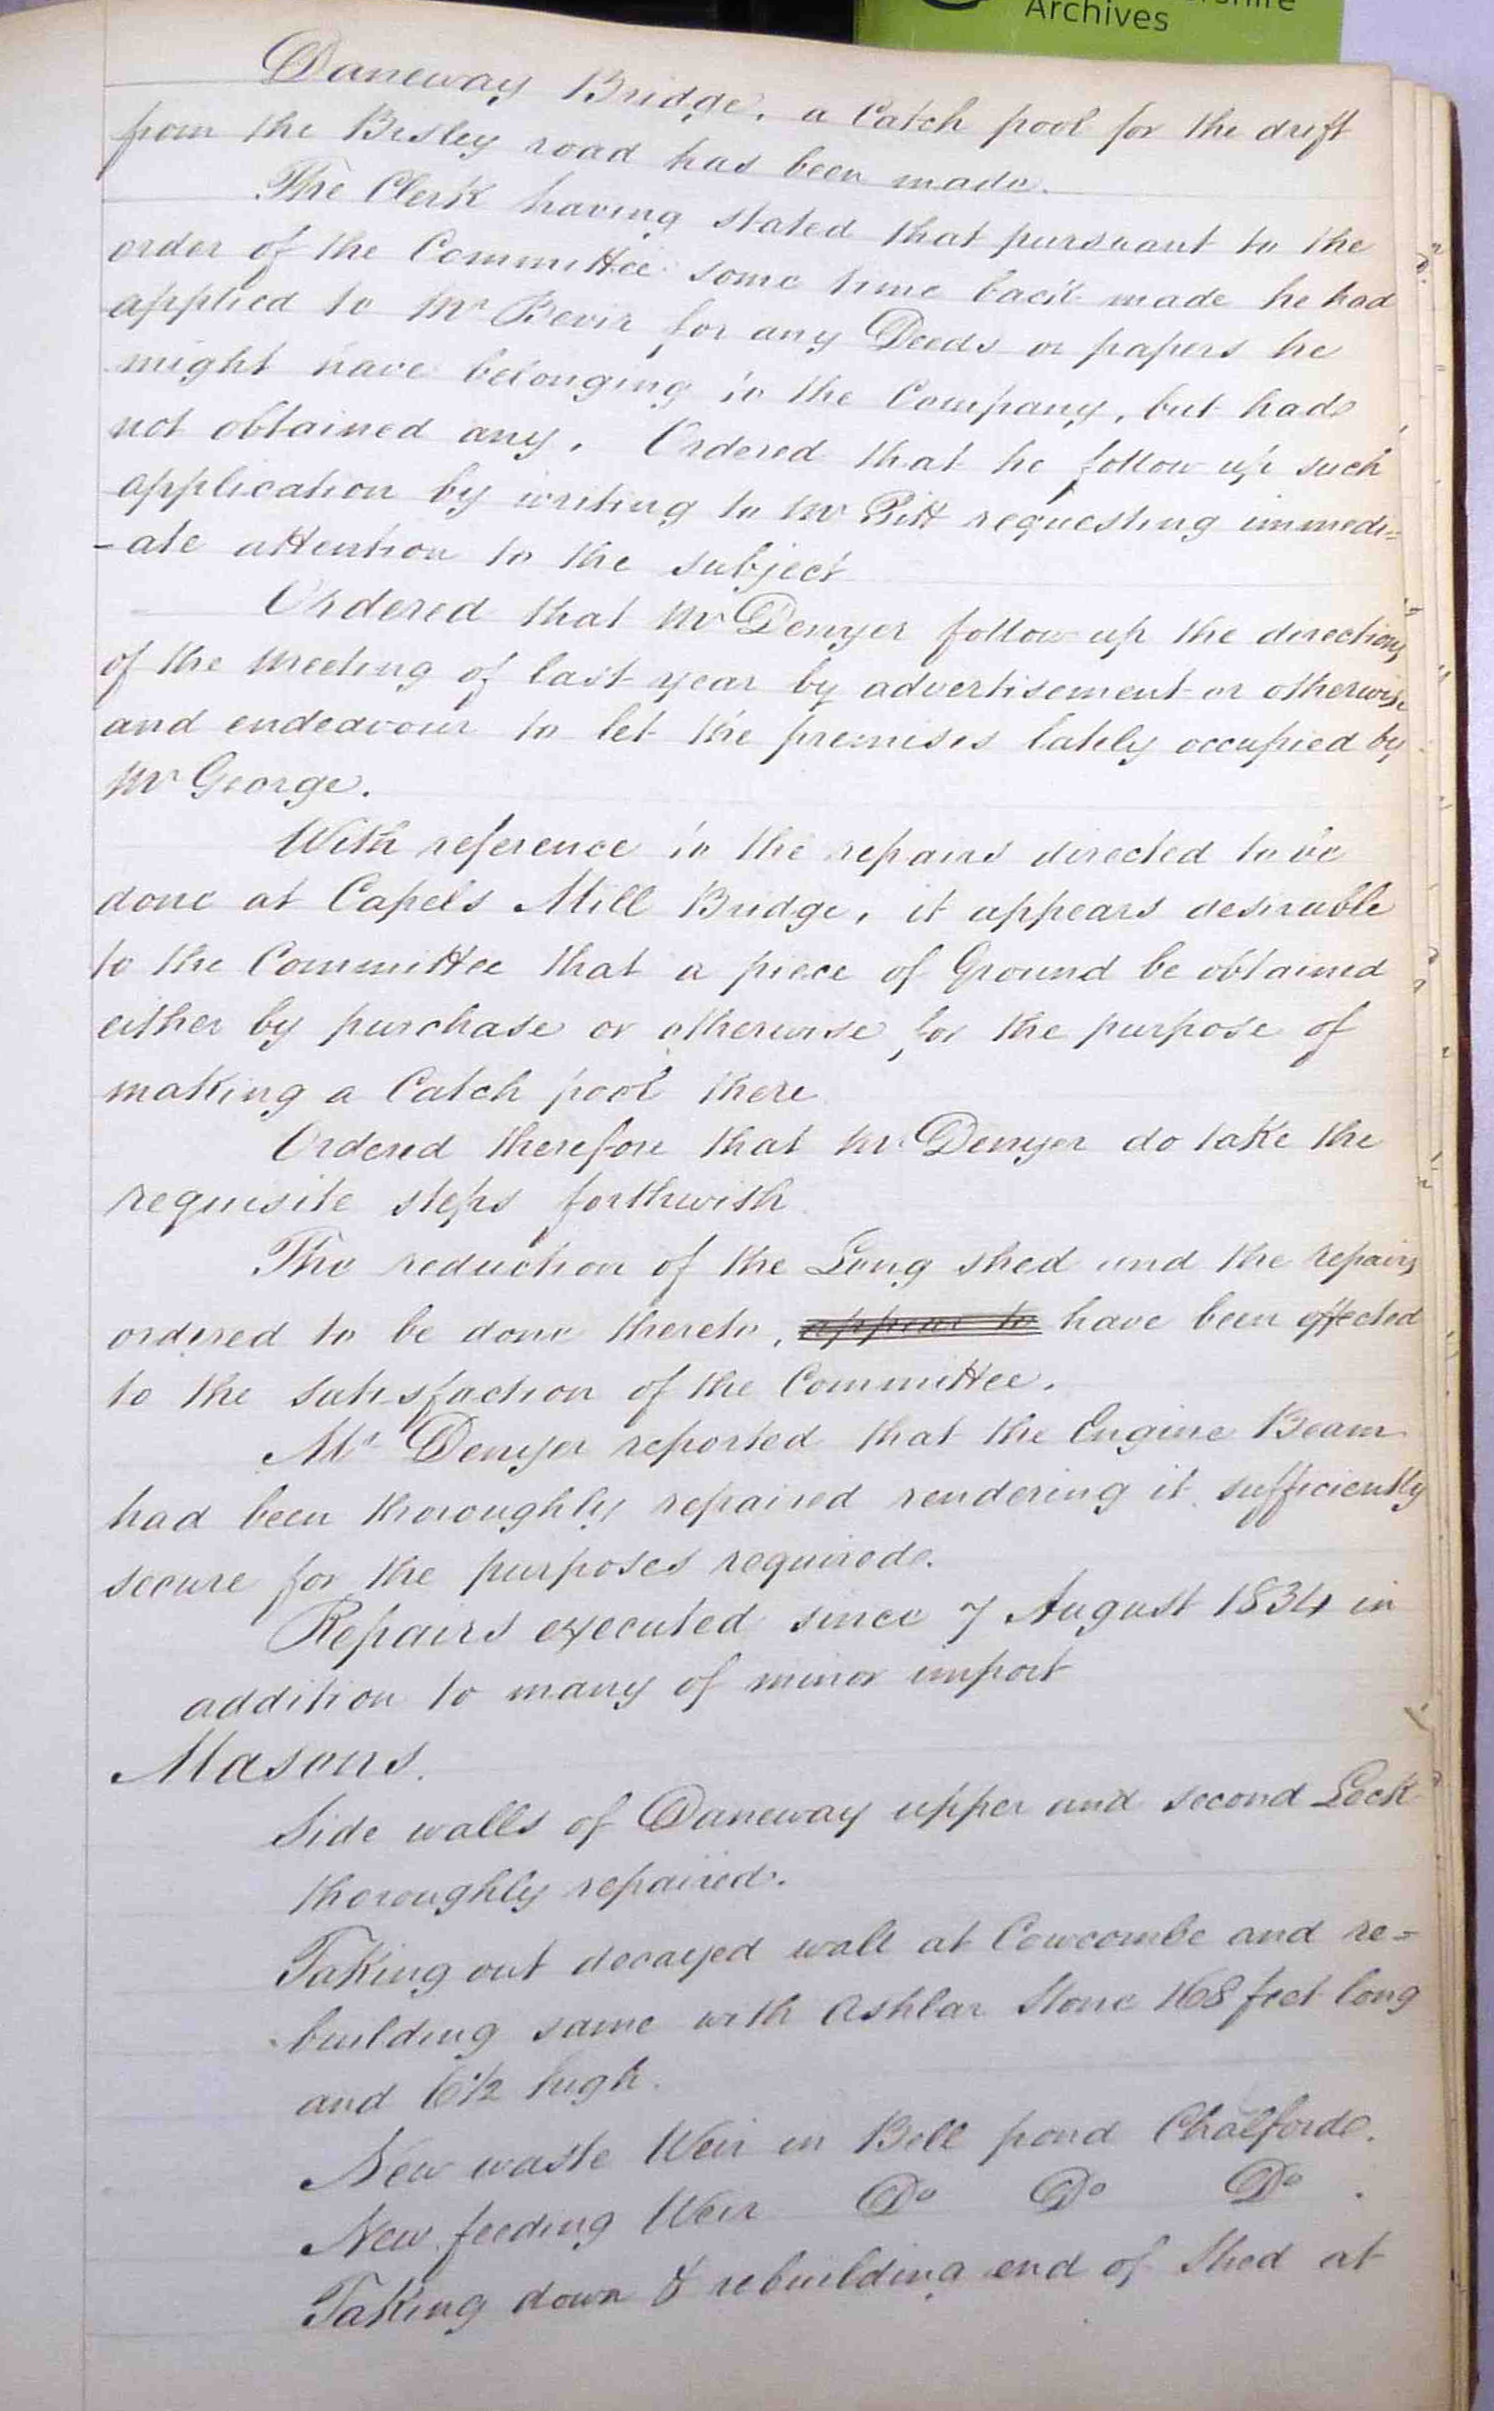 Archives
Daneway Bridge, a Catch pool for the drift
from the Bisley road has been made.
The Clerk having stated that pursuant to the
order of the Committee some time back made he had
applied to Mr Bevir for any Deeds or papers he
might have belonging to the Company, but had
not obtained any. Ordered that he follow up such
application by writing to Mr Pitt requesting immedi=
-ate attention to the subject
Ordered that Mr Denyer follow up the directions
of the Meeting of last year by advertisement or otherwise
and endeavour to let the premises lately occupied by
Mr George.
With reference to the repairs directed to be
done at Capels Mill Bridge, it appears desirable
to the Committee that a piece of Ground be obtained
either by purchase or otherwise for the purpose of
making a Catch pool there
Ordered therefore that Mr Denyer do take the
requisite steps forthwith.
The reduction of the Long shed and the repairs
ordered to be done thereto, appear to have been effected
to the satisfaction of the Committee.
Mr Denyer reported that the Engine Beam
had been thoroughly repaired rendering it sufficiently
secure for the purposes required.
Repairs executed since 7 August 1834 in
addition to many of minor import
Masons.
Side walls of Daneway upper and second Lock
thoroughly repaired.
Taking out decayed wall at Cowcombe and re=
building same with Ashlar Stone 168 feet long
and 6½ high.
New waste Weir in Bell pond Chalford.
New feeding Weir Do Do Do.
Taking down & rebuilding end of Shed at